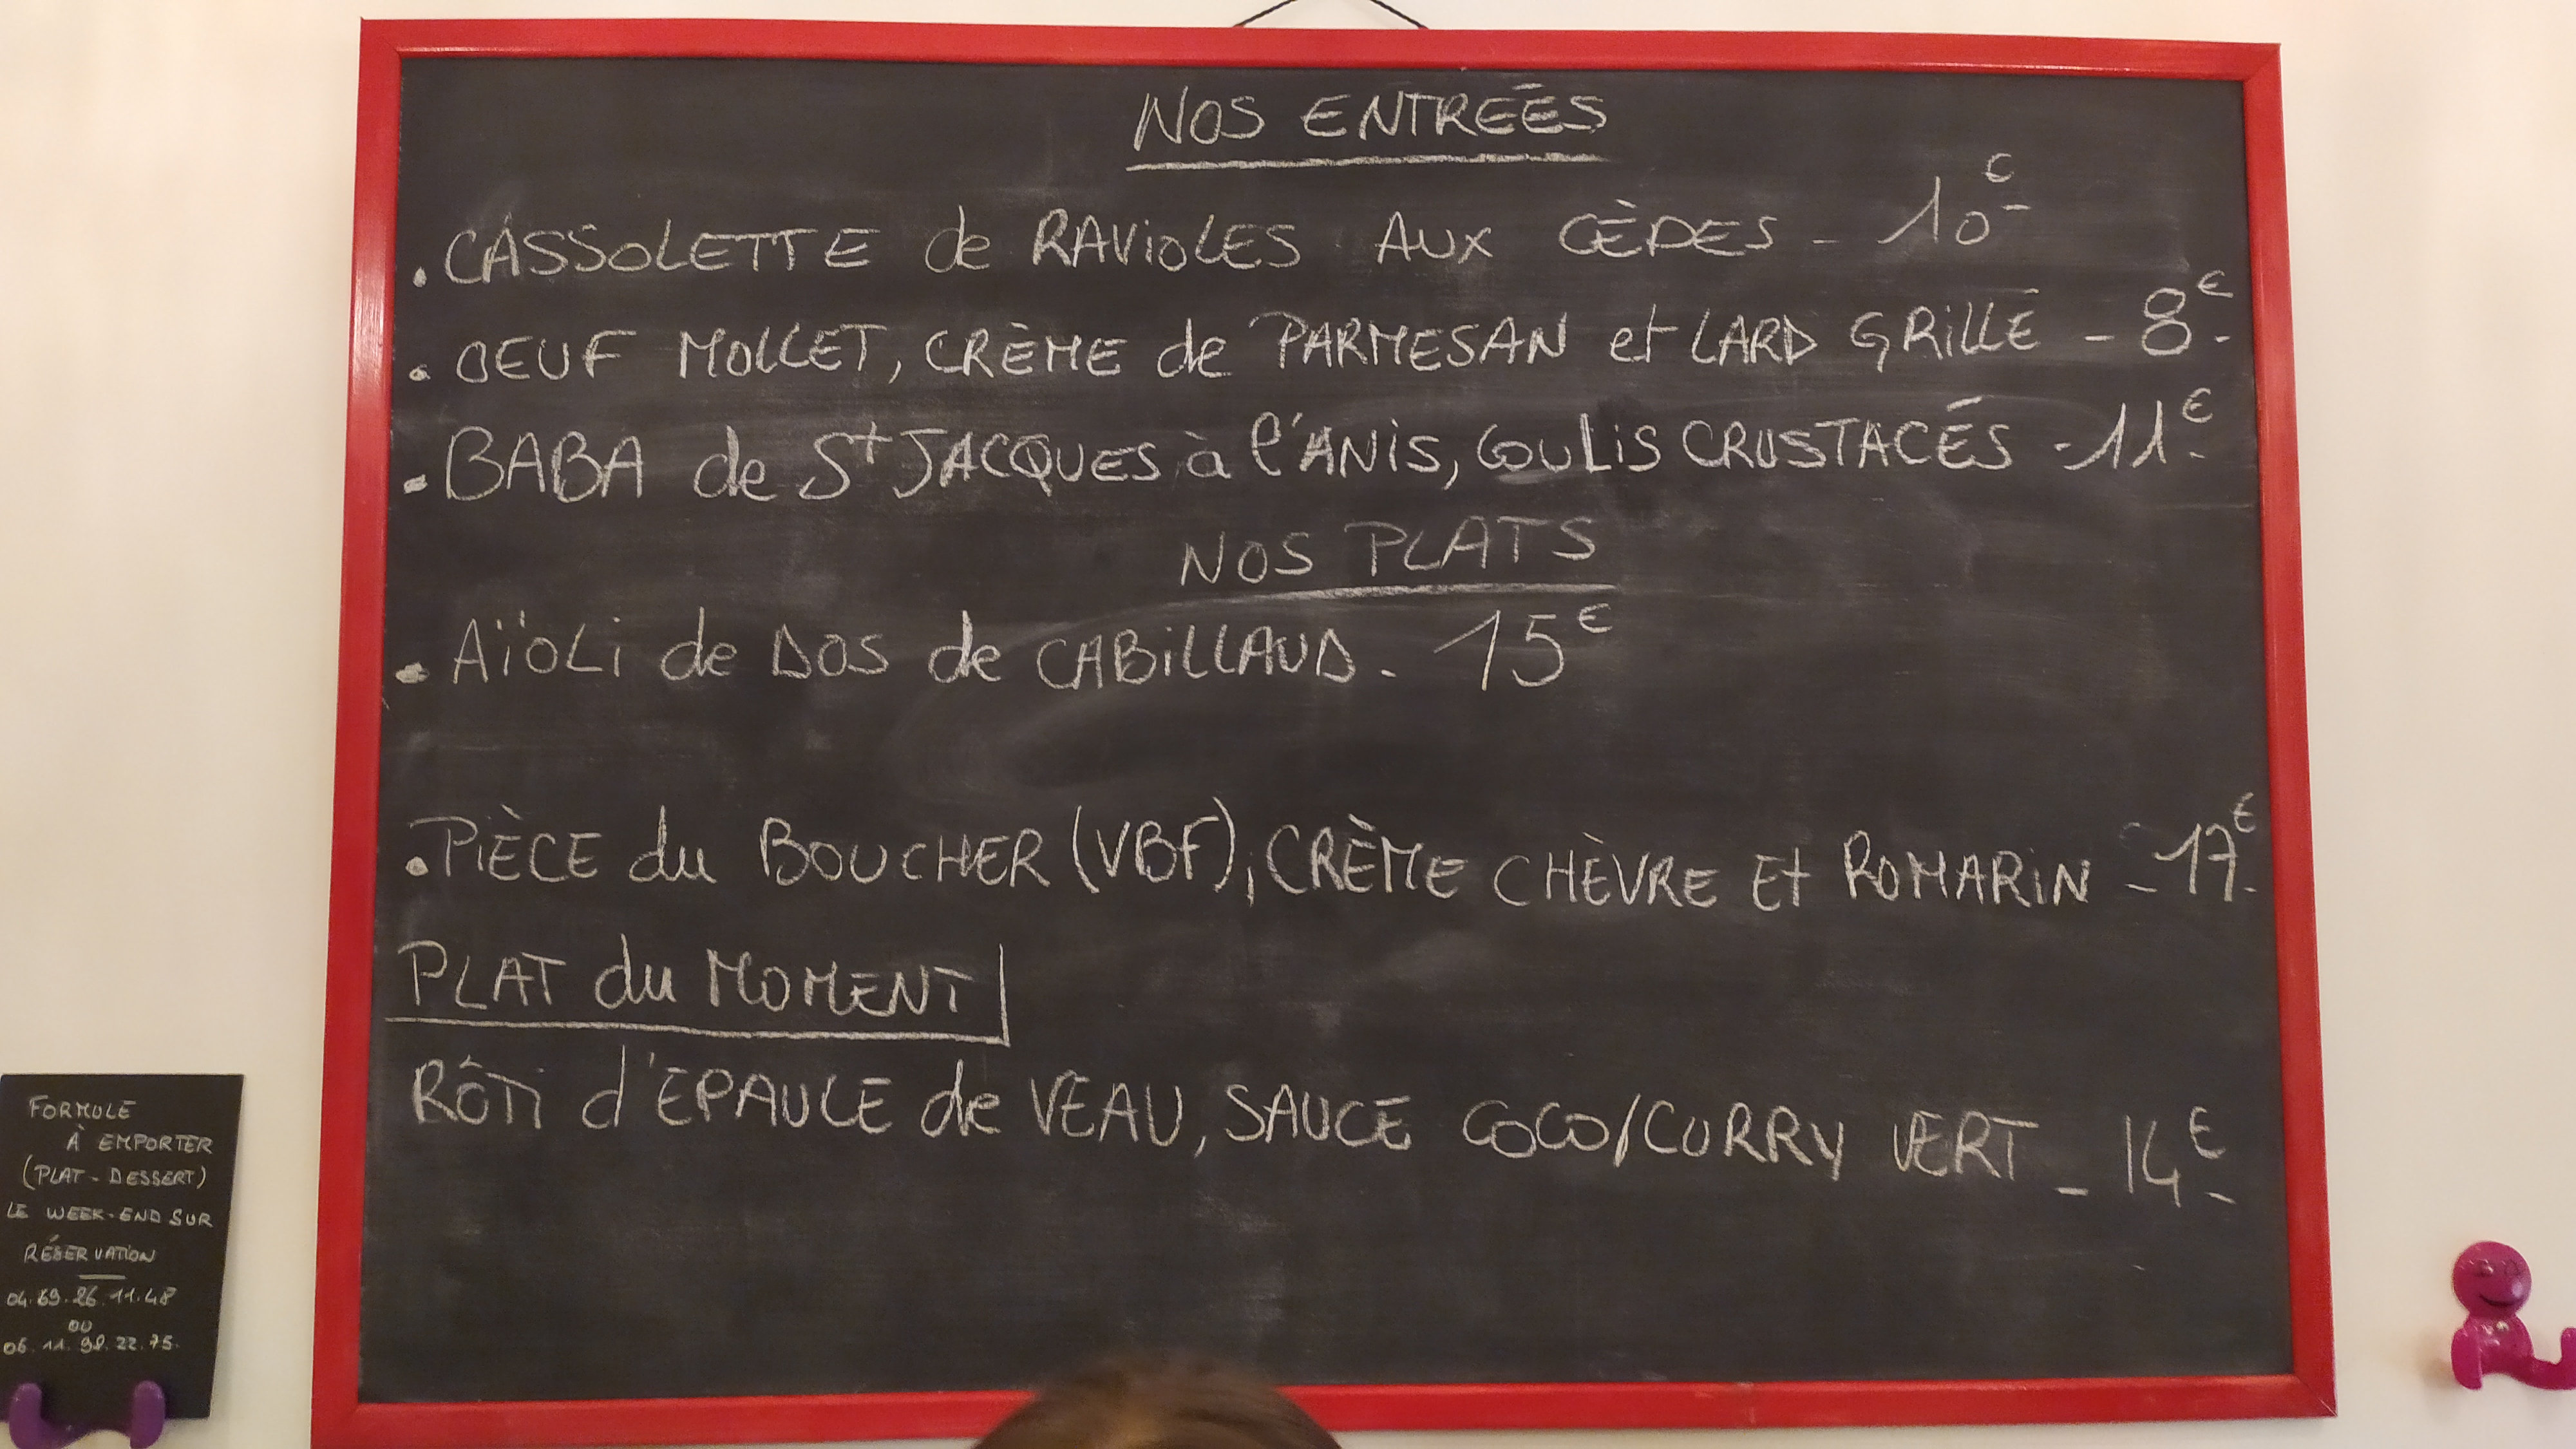 NOS ENTREÉS
. CASSOLETTE de RAViOLES AUX CÈPES - 10€-
. OEUF MOLLET, CRÈME de PARMESAN et LARD GRiLLÉ - 8€-
. BABA de St JACQUES à l'ANiS, COULiS CRUSTACÉS - 11€-
NOS PLATS
. AïOLi de DOS de CABiLLAUD - 15€
. PiÈCE du BOUCHER (VBF), CRÈME CHÈVRE Et ROMARiN - 17€-
PLAT du MOMENT
RÔTi d'EPAULE de VEAU, SAUCE COCO/CURRY VERT - 14€-
FORMULE
À EMPORTER
(PLAT - DESSERT)
LE WEEK-END SUR
RÉSERVATiON
04.69.26.11.48
OU
06.11.98.22.75.